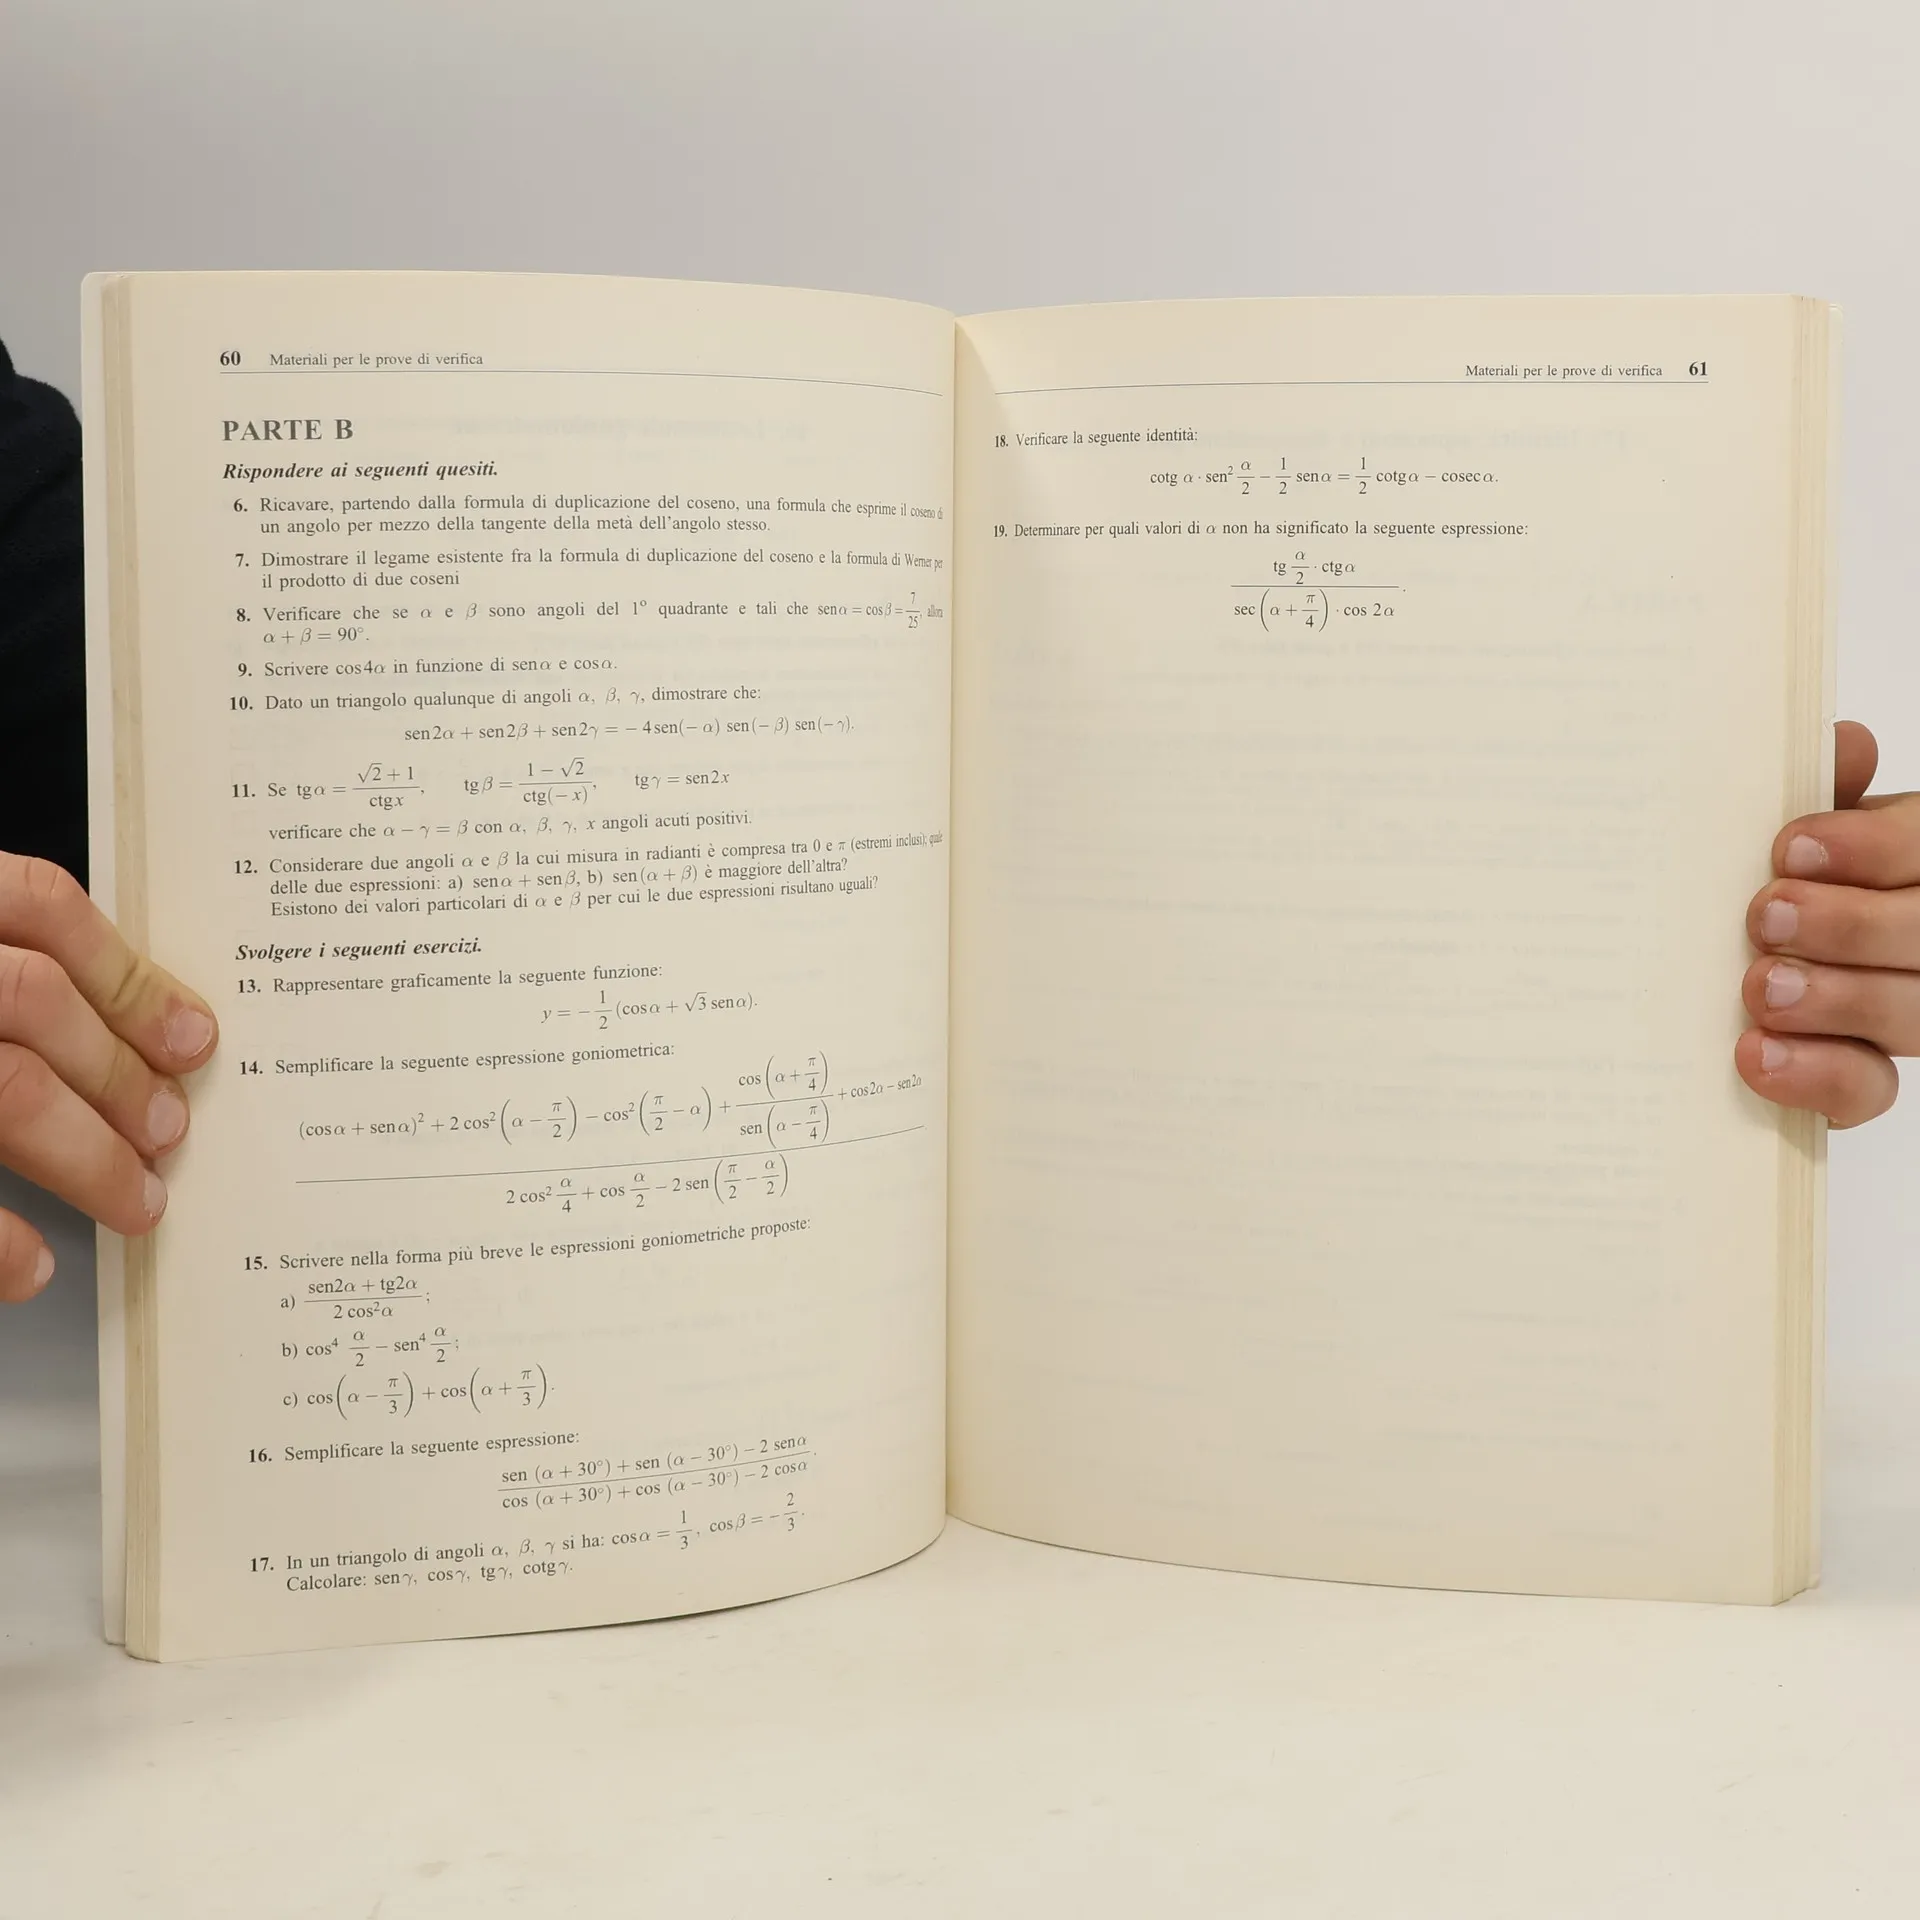 60 Materiali per le prove di verifica
PARTE B
Rispondere ai seguenti quesiti.
6. Ricavare, partendo dalla formula di duplicazione del coseno, una formula che esprime il coseno di
un angolo per mezzo della tangente della metà dell'angolo stesso.
7. Dimostrare il legame esistente fra la formula di duplicazione del coseno e la formula di Werner per
il prodotto di due coseni
8. Verificare che se α e β sono angoli del 1° quadrante e tali che senα = cosβ = 7/25, allora
α + β = 90°.
9. Scrivere cos4α in funzione di senα e cosα.
10. Dato un triangolo qualunque di angoli α, β, γ, dimostrare che:
sen2α + sen2β + sen2γ = − 4sen(− α) sen(− β) sen(− γ).
11. Se tgα = (√2 + 1)/ctgx, tgβ = (1 − √2)/ctg(− x), tgγ = sen2x
verificare che α − γ = β con α, β, γ, x angoli acuti positivi.
12. Considerare due angoli α e β la cui misura in radianti è compresa tra 0 e π (estremi inclusi); quale
delle due espressioni: a) senα + senβ, b) sen(α + β) è maggiore dell'altra?
Esistono dei valori particolari di α e β per cui le due espressioni risultano uguali?
Svolgere i seguenti esercizi.
13. Rappresentare graficamente la seguente funzione:
y = − 1/2 (cosα + √3 senα).
14. Semplificare la seguente espressione goniometrica:
(cosα + senα)² + 2 cos² (α − π/2) − cos² (π/2 − α) + cos (α + π/4) / sen (α − π/4) + cos2α − sen2α
2 cos² α/4 + cos α/2 − 2 sen (π/2 − α/2)
15. Scrivere nella forma più breve le espressioni goniometriche proposte:
a) (sen2α + tg2α) / (2 cos²α) ;
b) cos⁴ α/2 − sen⁴ α/2 ;
c) cos(α − π/3) + cos(α + π/3).
16. Semplificare la seguente espressione:
sen (α + 30°) + sen (α − 30°) − 2 senα
cos (α + 30°) + cos (α − 30°) − 2 cosα .
17. In un triangolo di angoli α, β, γ si ha: cosα = 1/3, cosβ = − 2/3.
Calcolare: senγ, cosγ, tgγ, cotgγ.
Materiali per le prove di verifica 61
18. Verificare la seguente identità:
cotg α · sen² α/2 − 1/2 senα = 1/2 cotgα − cosecα.
19. Determinare per quali valori di α non ha significato la seguente espressione:
tg α/2 · ctgα
sec (α + π/4) · cos 2α .